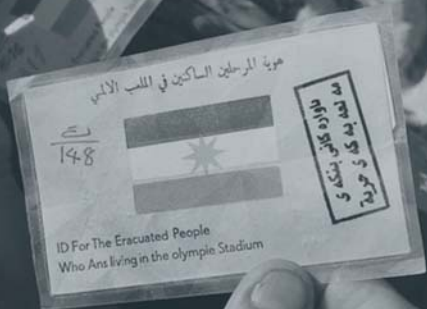 هوية المرحلين الساكنين في الملعب الالمبي
ع
148
ئاواره كانى بنكه ى
مه لعه به كه ى حرية
ID For The Eracuated People
Who Ans living in the olympie Stadium